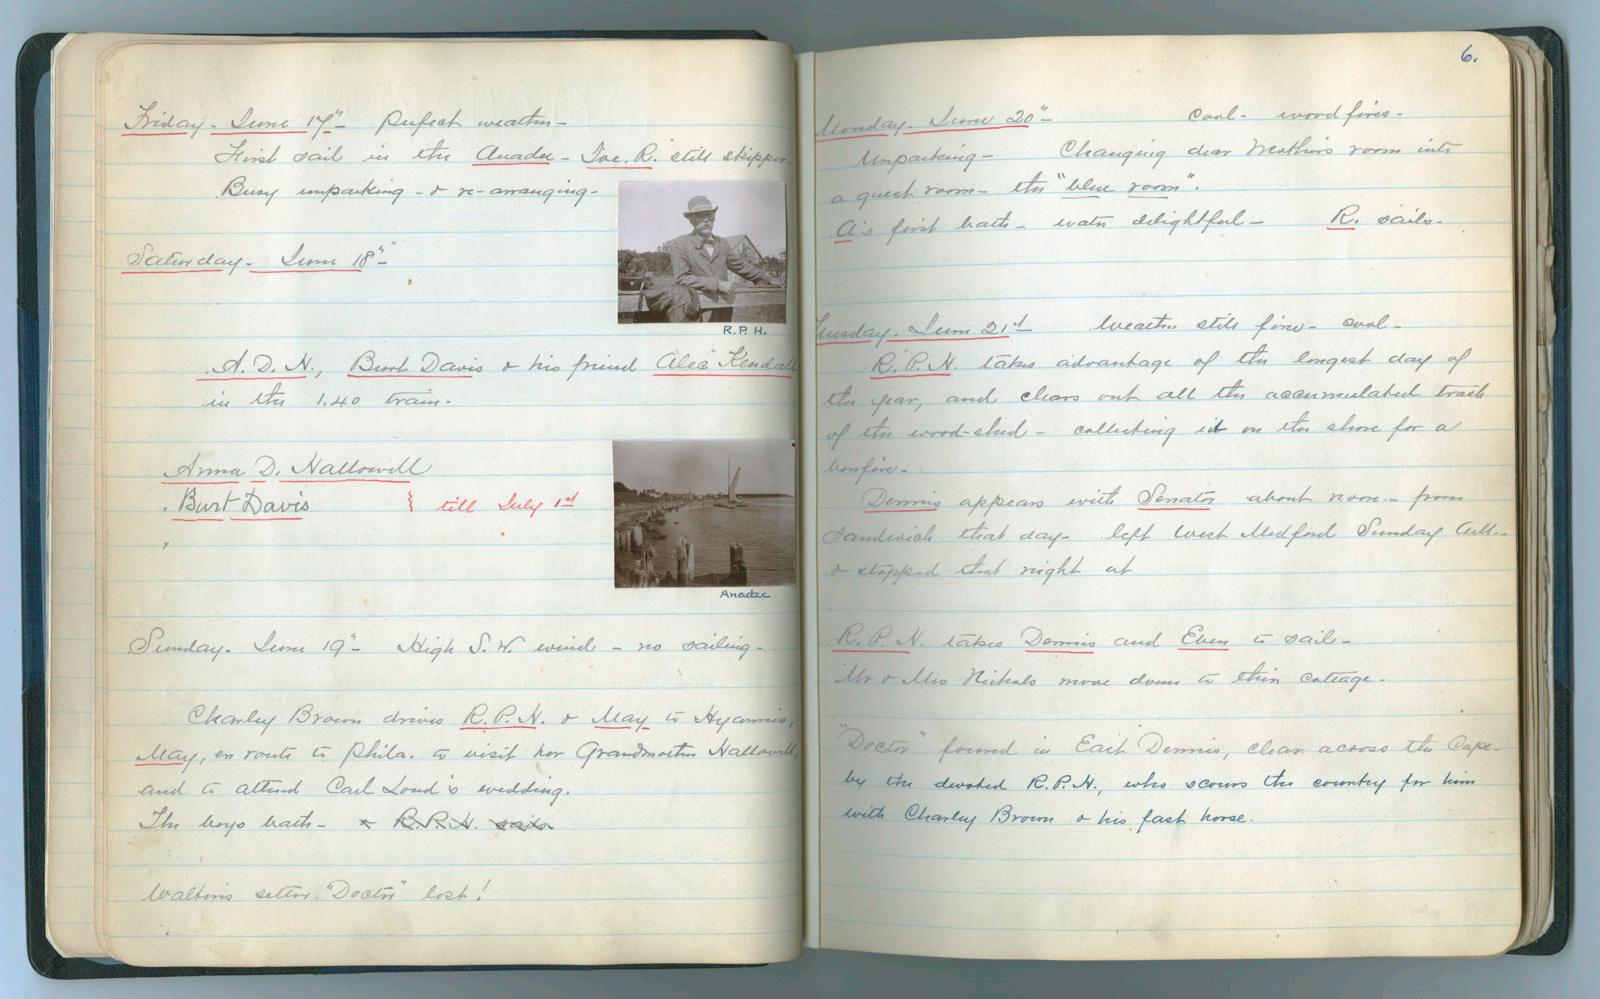 Friday - June 17" - Perfect weather -
First sail in the Anadee - Joe. R. still skipper -
Busy unpacking - & re-arranging -
Saturday - June 18" -
R.P.H.
A. D. H., Burt Davis & his friend Alec Kendall
in the 1.40 train.
Anna D. Hallowell
Burt Davis } till July 1st
Anadee
Sunday - June 19" - High S.W. wind - no sailing -
Charley Brown drives R.P.H. & May to Hyannis,
May, en route to Phila. to visit her Grandmother Hallowell,
and to attend Carl Loud's wedding.
The boys bathe - & R.P.H. sails.
Walton's setter "Doctor" lost!
6.
Monday - June 20" - Cool - wood fires -
Unpacking - Changing dear Mother's room into
a guest room - the "blue room".
A's first bath - water delightful - R. sails -
Tuesday - June 21st Weather still fine - cool -
R.P.H. takes advantage of the longest day of
the year, and clears out all the accumulated trash
of the wood-shed - collecting it on the shore for a
bonfire -
Dennis appears with Senator about noon - from
Sandwich that day - left West Medford Sunday
& stopped that night at
R.P.H. takes Dennis and Even to sail -
Mr & Mrs Nichols move down to their cottage -
"Doctor" found in East Dennis, clear across the Cape -
by the devoted R.P.H., who scours the country for him
with Charley Brown & his fast horse.